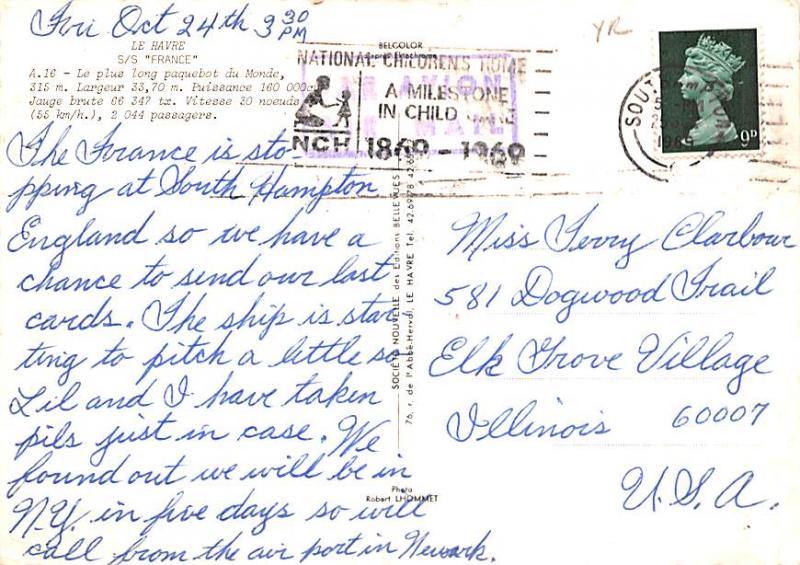 Fri Oct 24th 3 30 PM
LE HAVRE
S/S "FRANCE"
A.16 - Le plus long paquebot du Monde,
315 m. Largeur 33,70 m. Puissance 160 000
Jauge brute 66 347 tx. Vitesse 30 noeuds
(55 km/h.), 2 044 passagers.
The France is sto-
pping at South Hampton
England so we have a
chance to send our last
cards. The ship is star-
ting to pitch a little so
Lil and I have taken
pils just in case. We
found out we will be in
N.Y. in five days so will
call from the air port in Newark.
BELCOLOR
NATIONAL CHILDREN'S HOME
A MILESTONE
IN CHILD CARE
NCH 1869 - 1969
PAR AVION
AIR MAIL
SOCIÉTÉ NOUVELLE des Éditions BELLEVUES
76, r. de l'Abbé-Herval, LE HAVRE Tel. 42.69.78
Photo
Robert LHOMMET
YR
9D
Miss Terry Clarbour
581 Dogwood Trail
Elk Grove Village
Illinois 60007
U.S.A.